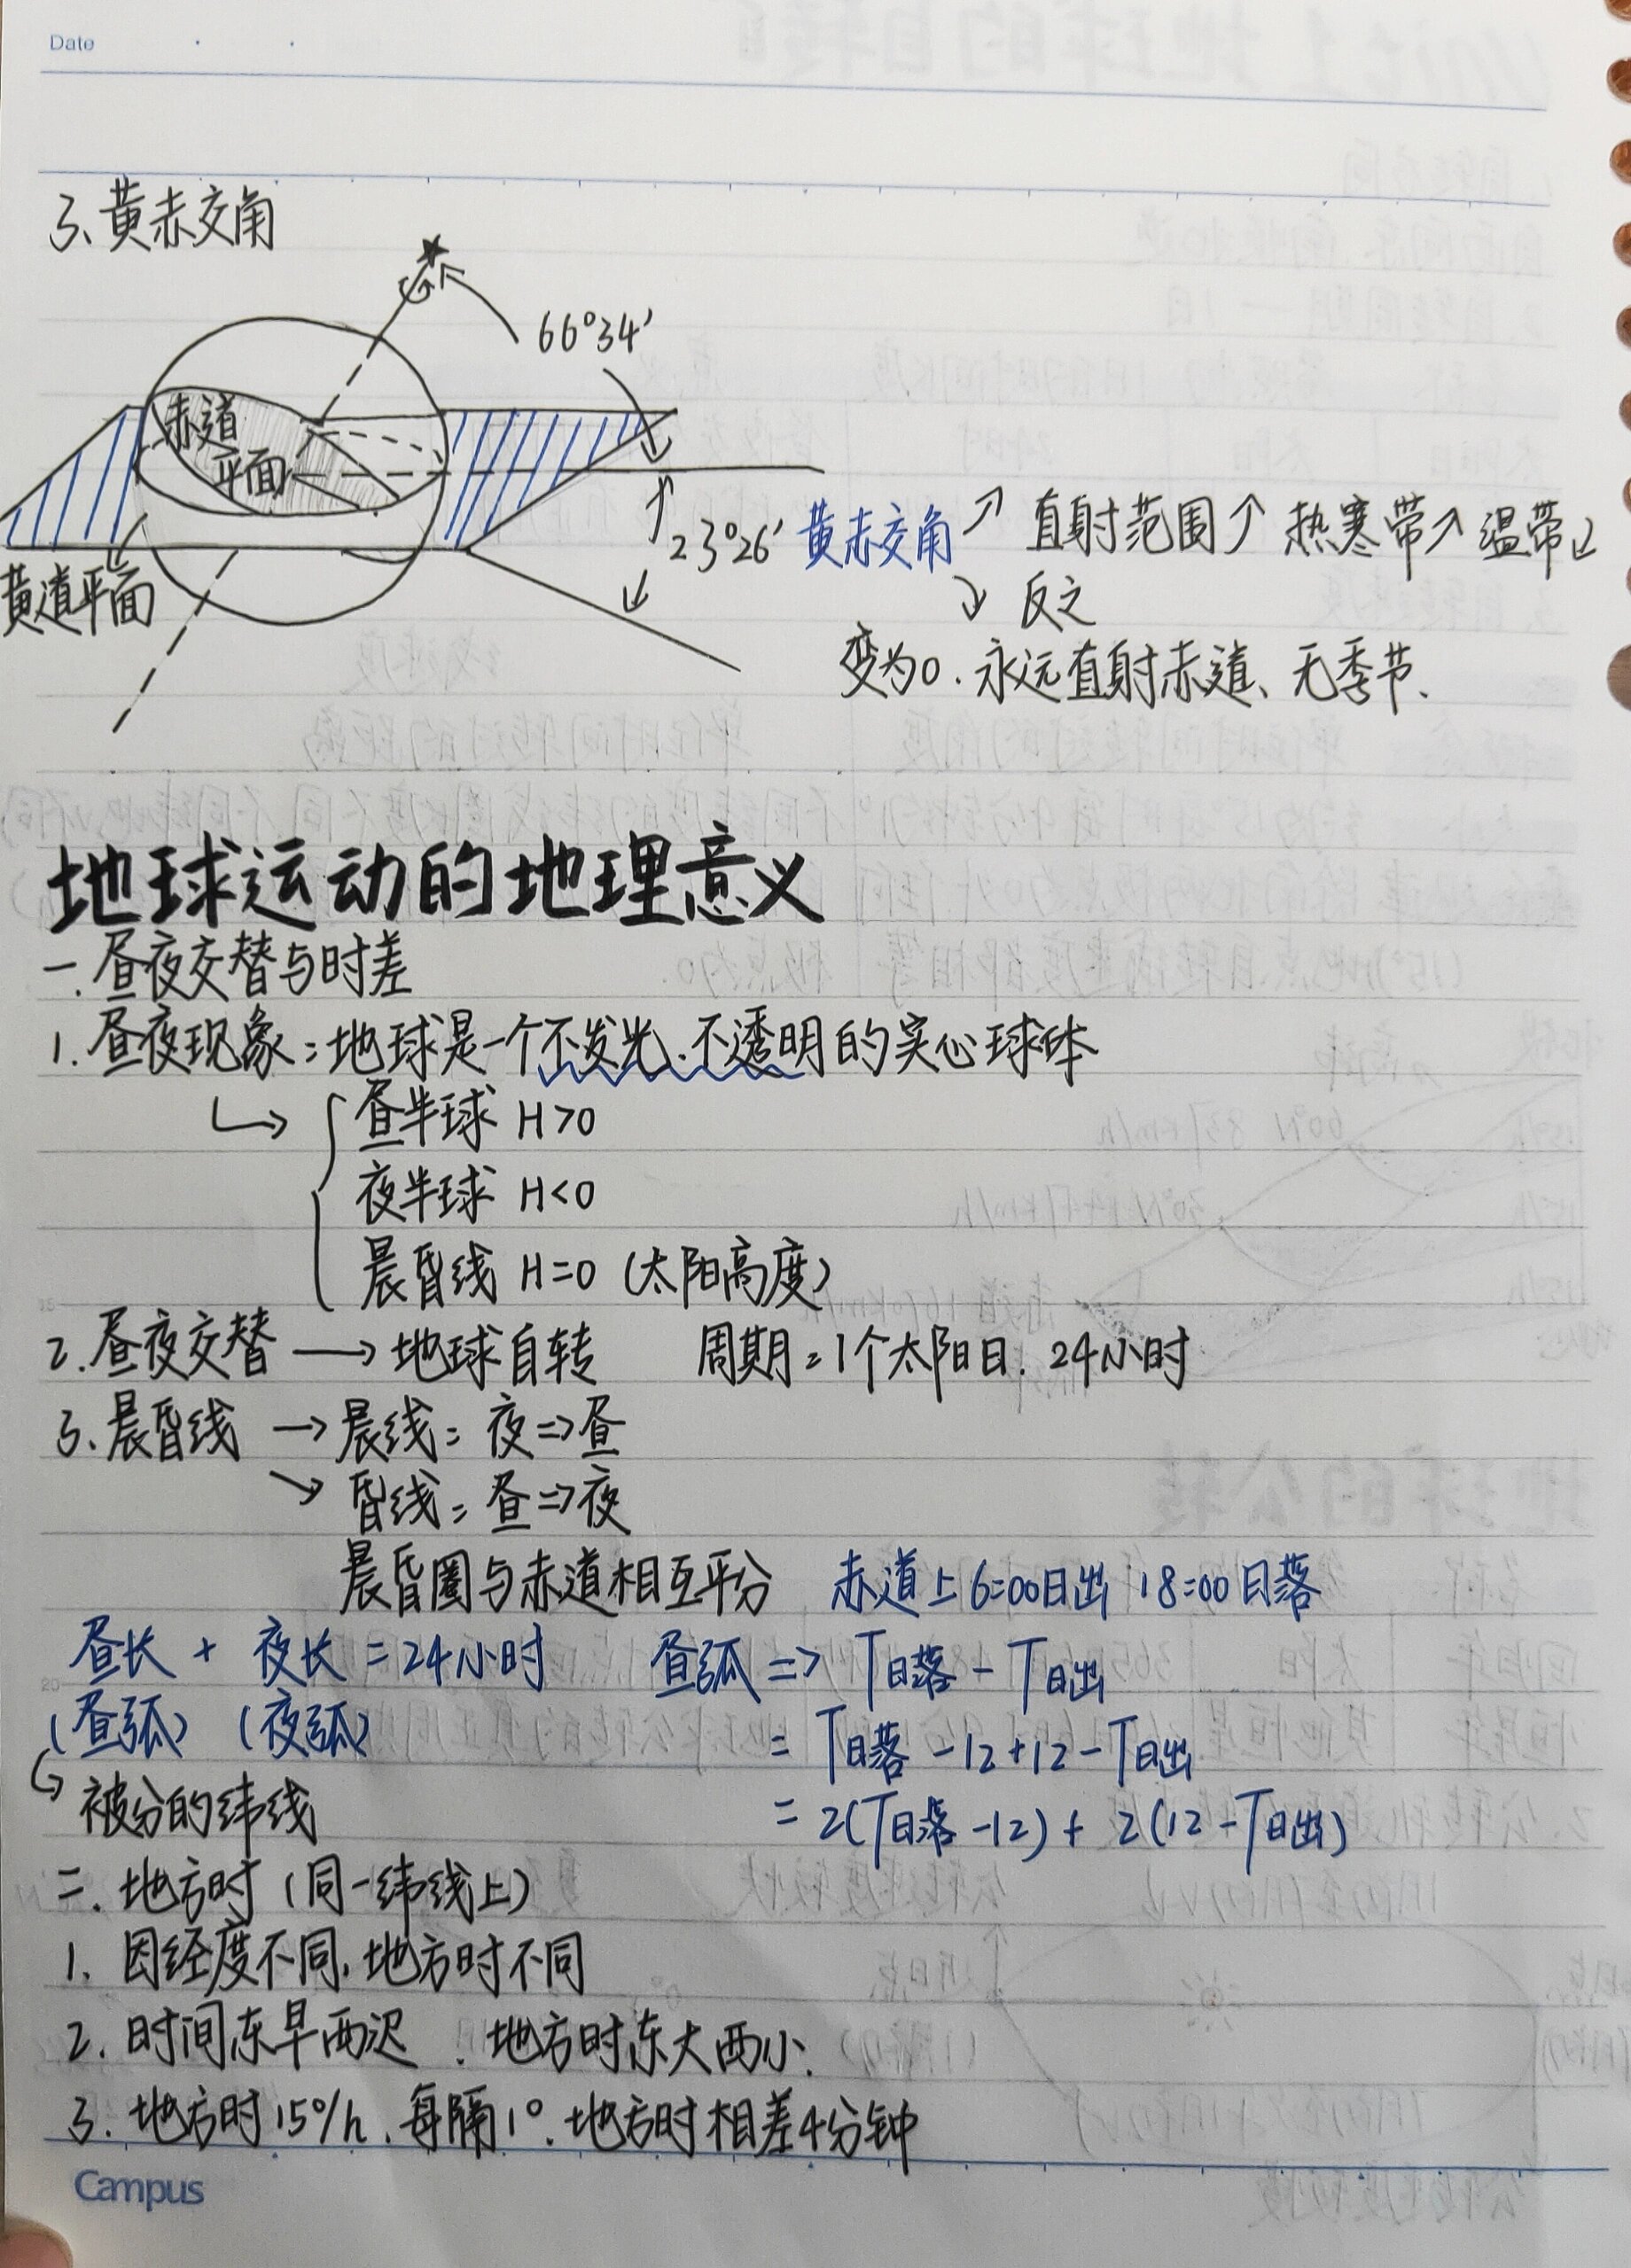 Date
3、黄赤交角
66°34'
赤道
平面
23°26' 黄赤交角↗ 直射范围↑ 热寒带↗ 温带↙
↘ 反之
黄道平面
变为0．永远直射赤道、无季节、
地球运动的地理意义
一．昼夜交替与时差
1．昼夜现象：地球是一个不发光、不透明的实心球体
昼半球 H>0
夜半球 H<0
晨昏线 H=0 (太阳高度)
2．昼夜交替 → 地球自转 周期：1个太阳日．24小时
3、晨昏线 → 晨线：夜⇒昼
↘ 昏线：昼⇒夜
晨昏圈与赤道相互平分 赤道上6:00日出 18:00日落
昼长 + 夜长 = 24小时 昼弧 => T日落 - T日出
(昼弧) (夜弧) = T日落 -12+12-T日出
被分的纬线 = 2(T日落-12)+ 2(12-T日出)
二．地方时 (同一纬线上)
1．因经度不同，地方时不同
2．时间东早西迟 ．地方时东大西小．
3．地方时15°/h、每隔1°．地方时相差4分钟
Campus